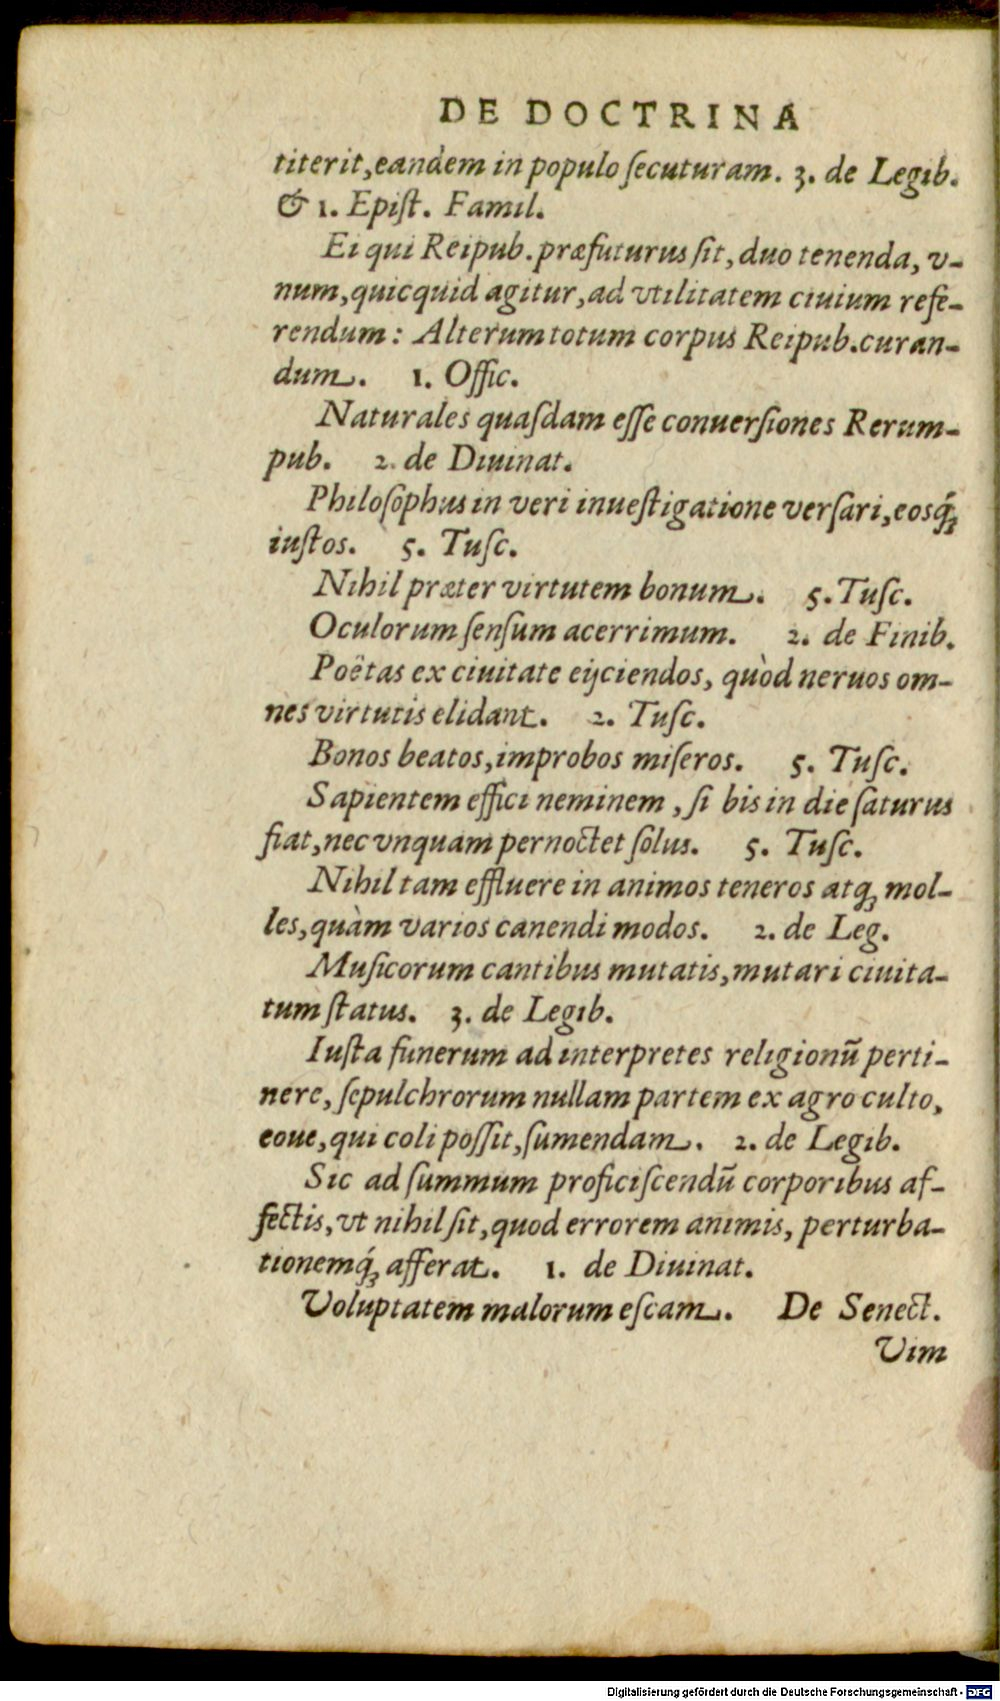 DE DOCTRINA
titerit, eandem in populo ſecuturam. 3. de Legib.
& 1. Epiſt. Famil.
Ei qui Reipub. præfuturus ſit, duo tenenda, v-
num, quicquid agitur, ad vtilitatem ciuium refe-
rendum: Alterum totum corpus Reipub. curan-
dum. 1. Offic.
Naturales quaſdam eſſe conuerſiones Rerum-
pub. 2. de Diuinat.
Philoſophus in veri inueſtigatione verſari, eosq́;
iuſtos. 5. Tuſc.
Nihil præter virtutem bonum. 5. Tuſc.
Oculorum ſenſum acerrimum. 2. de Finib.
Poëtas ex ciuitate eijciendos, quòd neruos om-
nes virtutis elidant. 2. Tuſc.
Bonos beatos, improbos miſeros. 5. Tuſc.
Sapientem effici neminem, ſi bis in die ſaturus
fiat, nec vnquam pernoctet ſolus. 5. Tuſc.
Nihil tam effluere in animos teneros atq; mol-
les, quàm varios canendi modos. 2. de Leg.
Muſicorum cantibus mutatis, mutari ciuita-
tum ſtatus. 3. de Legib.
Iuſta funerum ad interpretes religionū perti-
nere, ſepulchrorum nullam partem ex agro culto,
eoue, qui coli poſſit, ſumendam. 2. de Legib.
Sic ad ſummum proficiſcendū corporibus af-
fectis, vt nihil ſit, quod errorem animis, perturba-
tionemq́; afferat. 1. de Diuinat.
Voluptatem malorum eſcam. De Senect.
Vim
Digitalisierung gefördert durch die Deutsche Forschungsgemeinschaft - DFG